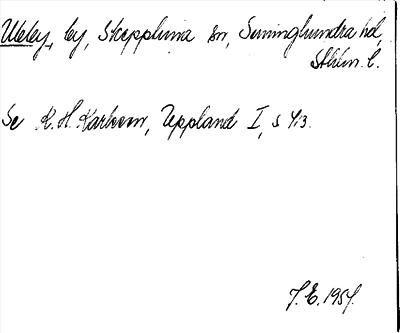 by, Skepptuna sn, Seminghundra hd,
Sthlm. l.
Se K. H. Karlsson, Uppland I, s 413.
J. E. 1957.